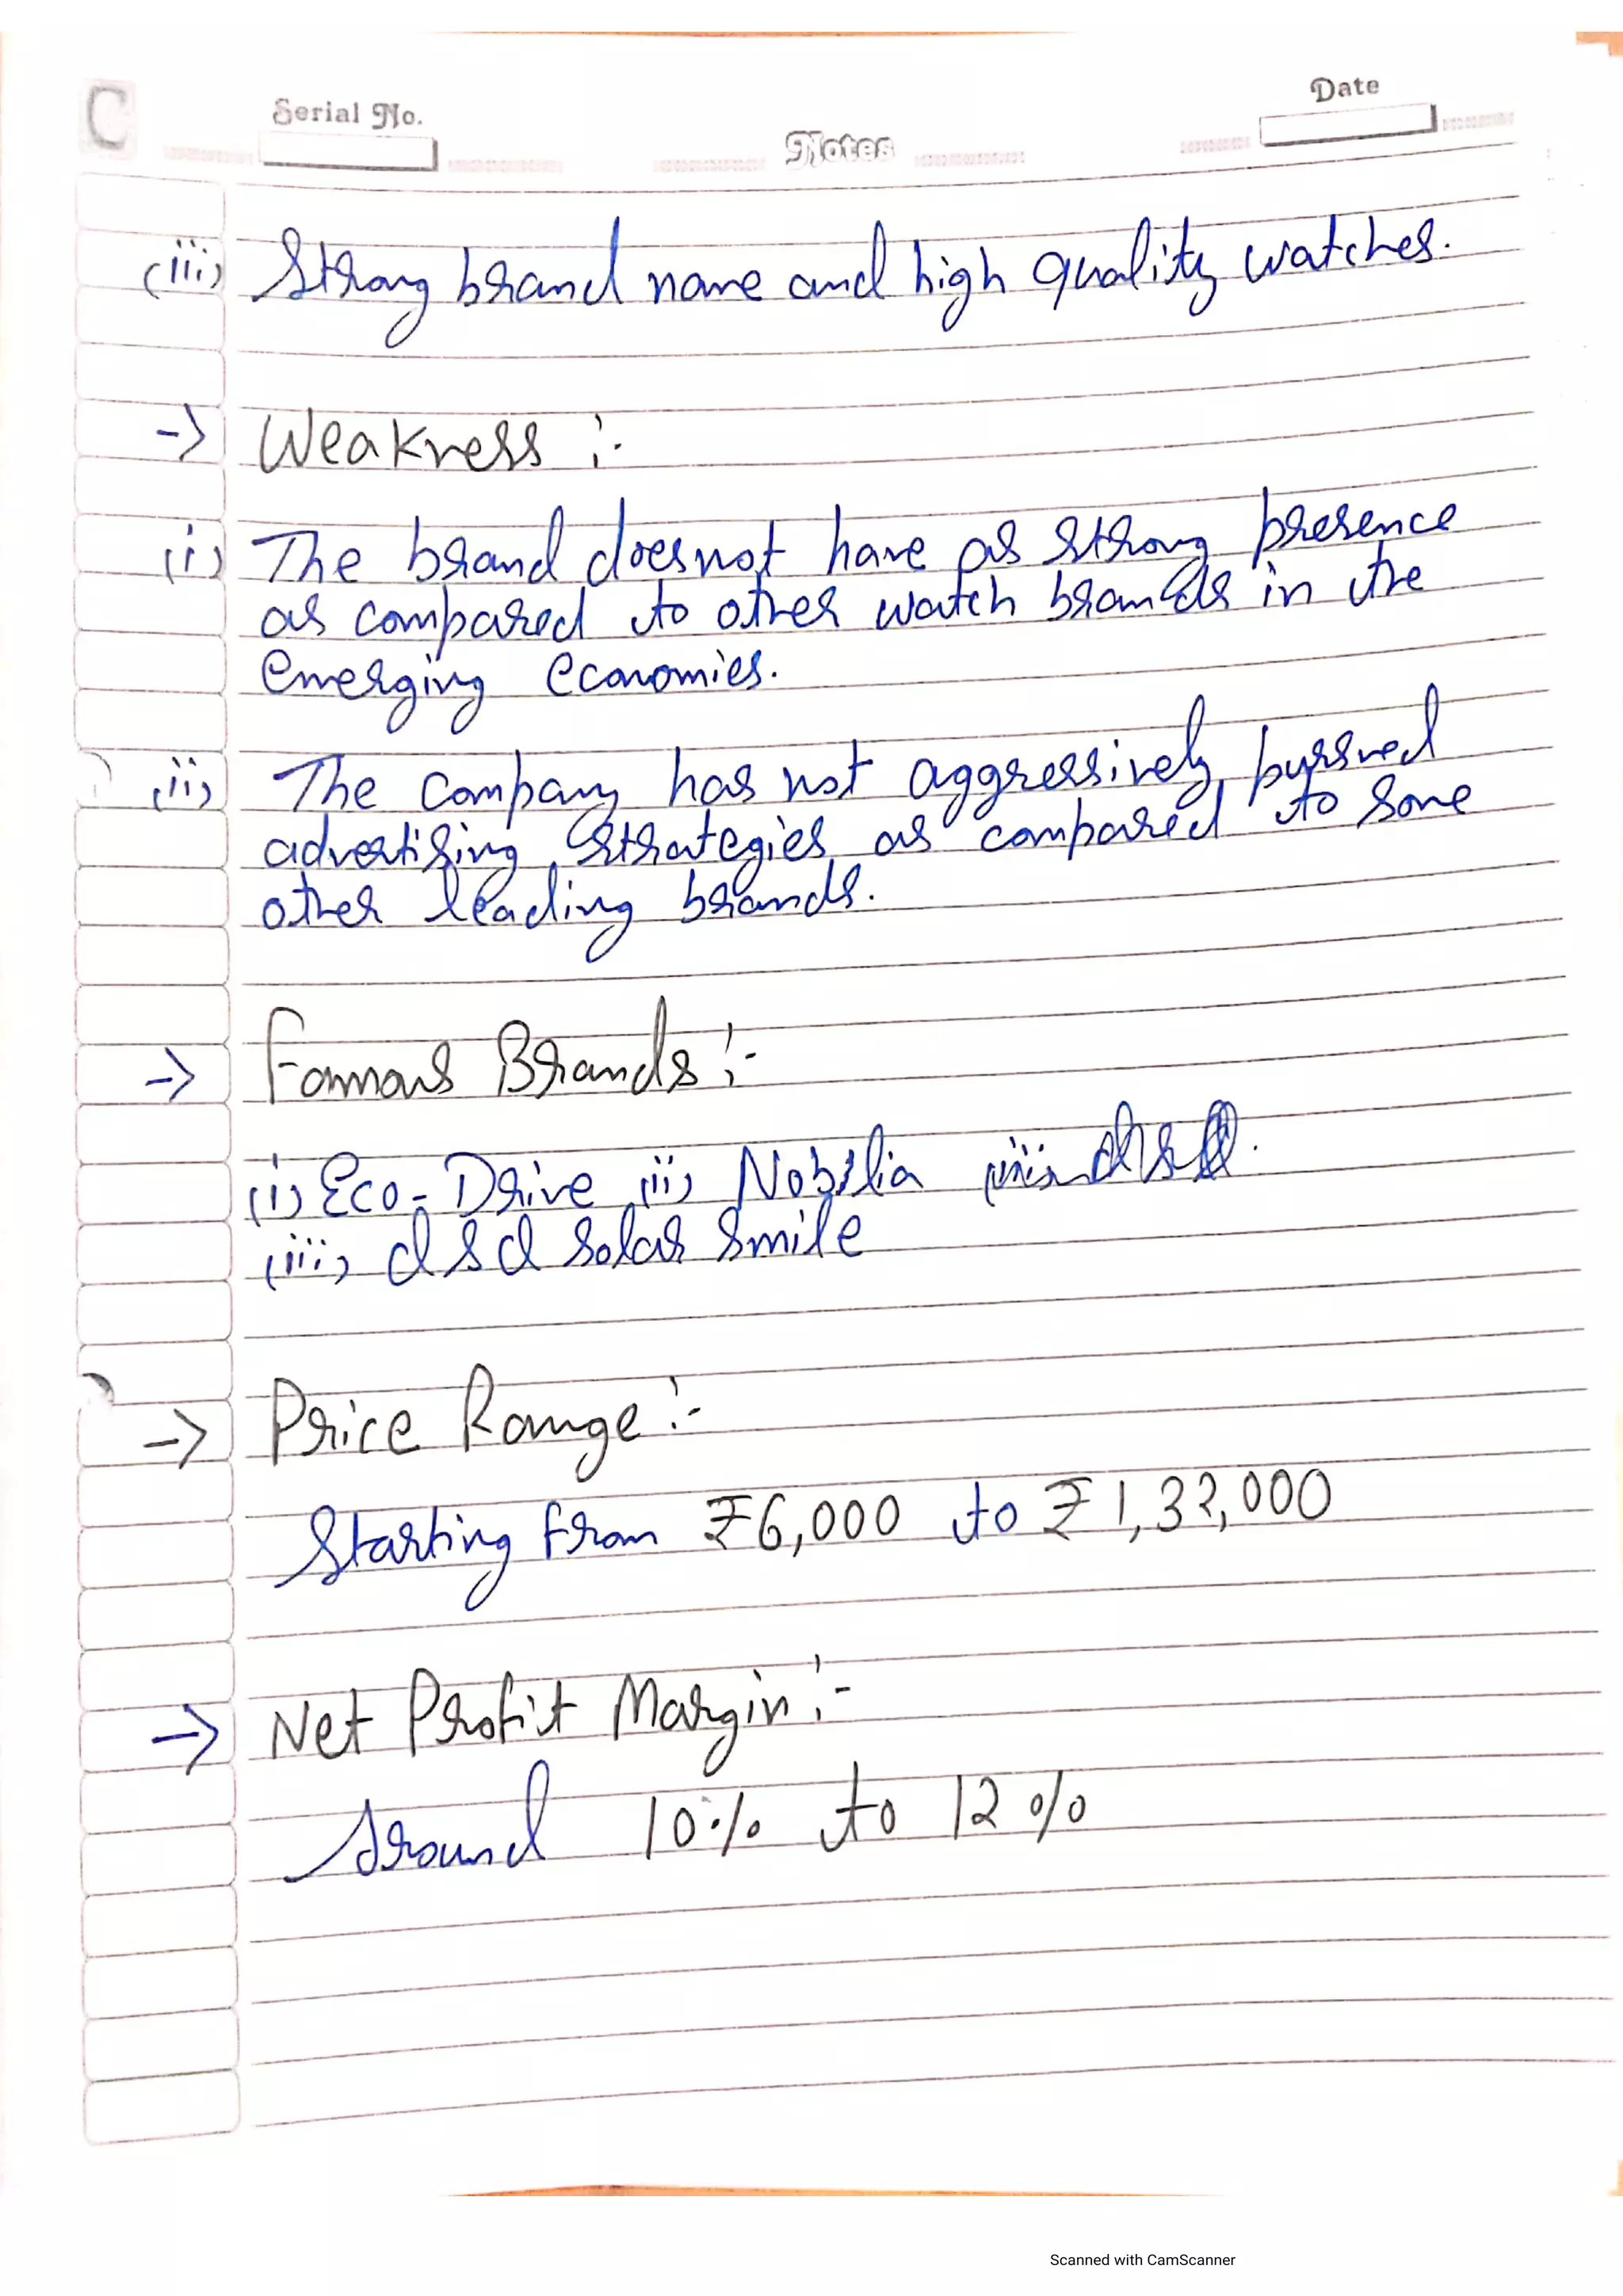 C
Serial No.
Notes
Date
(iii) Strong brand name and high quality watches.
-> Weakness :-
(i) The brand doesnot have as strong presence
as compared to other watch brands in the
emerging economies.
(ii) The company has not aggressively pursued
advertising strategies as compared to some
other leading brands.
-> Famous Brands :-
(i) Eco-Drive (ii) Nobilia (iii)
(iii) dsd Solar Smile
-> Price Range :-
Starting from ₹6,000 to ₹1,32,000
-> Net Profit Margin :-
Around 10% to 12%
Scanned with CamScanner